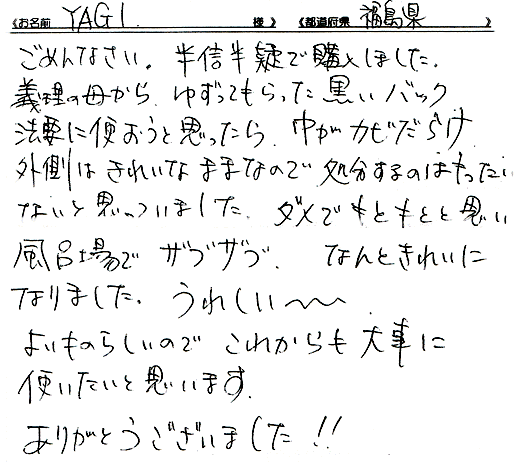 《お名前 YAGI 様》 《都道府県 福島県 》
ごめんなさい。半信半疑で購入しました。
義理の母から ゆずってもらった黒いバック
法要に使おうと思ったら、中がカビだらけ
外側はきれいなままなので 処分するのはもったい
ないと思っていました。ダメでもともとと思い
風呂場で ザブザブ、 なんときれいに
なりました。 うれしい〜〜
よいものらしいので これからも大事に
使いたいと思います。
ありがとうございました!!